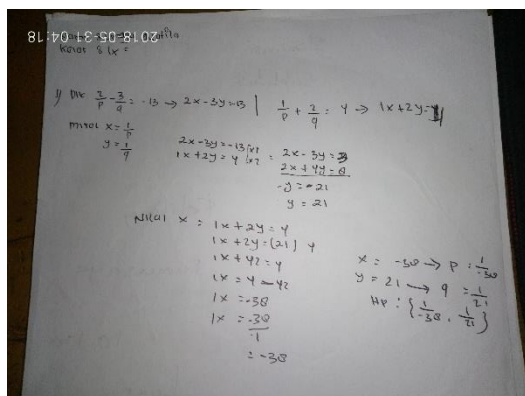 2018-05-31 04:18
Kelas 8
1) Dik 2/p - 3/q = -13 → 2x - 3y = -13 | 1/p + 2/q = 4 → 1x + 2y = 4
misal x = 1/p
y = 1/q
2x - 3y = -13 |x1| = 2x - 3y = 3
1x + 2y = 4 |x2| 2x + 4y = 8
-y = -21
y = 21
Nilai x = 1x + 2y = 4
1x + 2y = (21) 4
1x + 42 = 4
1x = 4 - 42
1x = -38
1x = -38/1
= -38
x = -38 → p = 1/-38
y = 21 → q = 1/21
HP : {1/-38, 1/21}